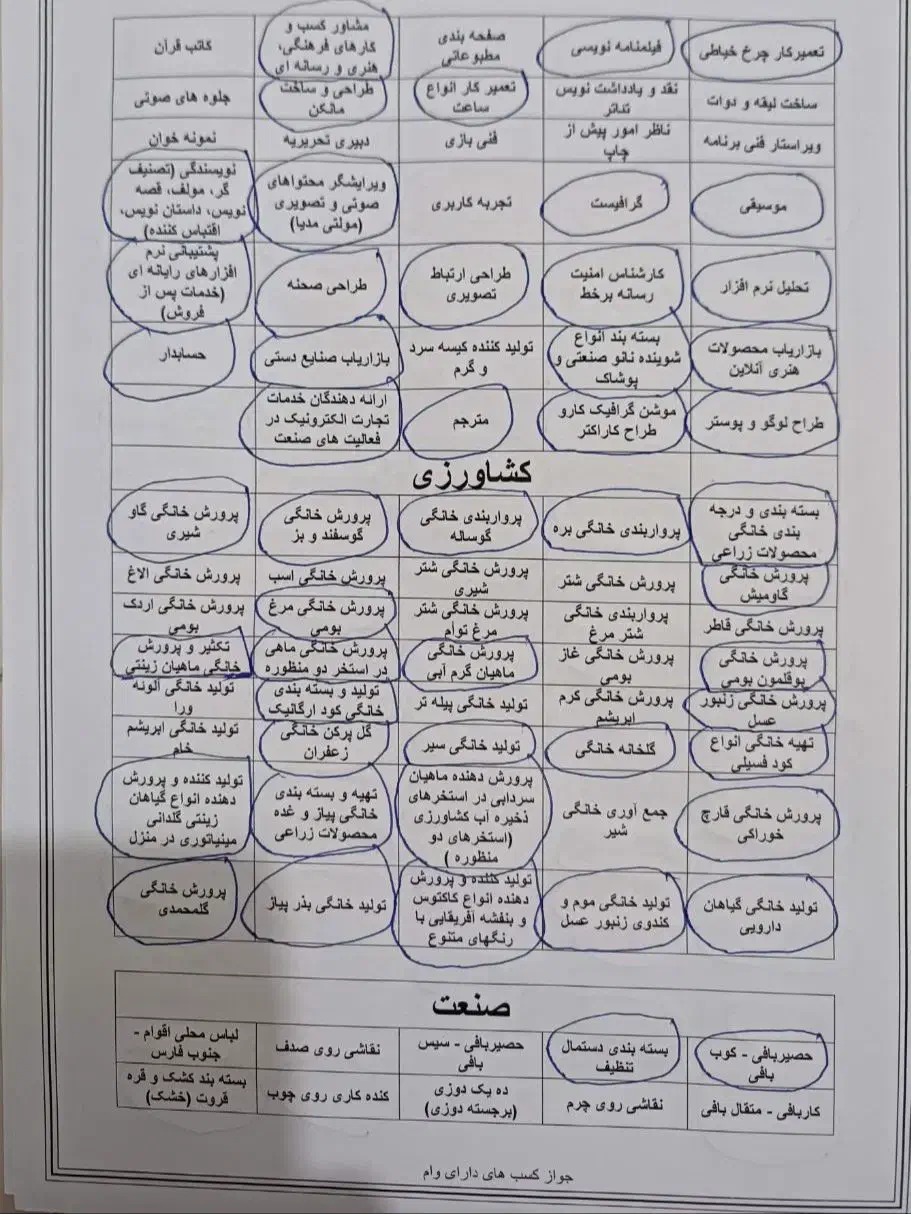 تعمیرکار چرخ خیاطی
فیلمنامه نویسی
صفحه بندی
مطبوعاتی
مشاور کسب و
کارهای فرهنگی،
هنری و رسانه ای
کاتب قرآن
ساخت لیقه و دوات
نقد و یادداشت نویس
تئاتر
تعمیر کار انواع
ساعت
طراحی و ساخت
مانکن
جلوه های صوتی
ویراستار فنی برنامه
ناظر امور پیش از
چاپ
فنی بازی
دبیری تحریریه
نمونه خوان
موسیقی
گرافیست
تجربه کاربری
ویرایشگر محتواهای
صوتی و تصویری
(مولتی مدیا)
نویسندگی (تصنیف
گر، مولف، قصه
نویس، داستان نویس،
اقتباس کننده)
تحلیل نرم افزار
کارشناس امنیت
رسانه برخط
طراحی ارتباط
تصویری
طراحی صحنه
پشتیبانی نرم
افزارهای رایانه ای
(خدمات پس از
فروش)
بازاریاب محصولات
هنری آنلاین
بسته بند انواع
شوینده نانو صنعتی و
پوشاک
تولید کننده کیسه سرد
و گرم
بازاریاب صنایع دستی
حسابدار
طراح لوگو و پوستر
موشن گرافیک کارو
طراح کاراکتر
مترجم
ارائه دهندگان خدمات
تجارت الکترونیک در
فعالیت های صنعت
کشاورزی
بسته بندی و درجه
بندی خانگی
محصولات زراعی
پرواربندی خانگی بره
پرواربندی خانگی
گوساله
پرورش خانگی
گوسفند و بز
پرورش خانگی گاو
شیری
پرورش خانگی
گاومیش
پرورش خانگی شتر
پرورش خانگی شتر
شیری
پرورش خانگی اسب
پرورش خانگی الاغ
پرورش خانگی قاطر
پرواربندی خانگی
شتر مرغ
پرورش خانگی شتر
مرغ توأم
پرورش خانگی مرغ
بومی
پرورش خانگی اردک
بومی
پرورش خانگی
بوقلمون بومی
پرورش خانگی غاز
بومی
پرورش خانگی
ماهیان گرم آبی
پرورش خانگی ماهی
در استخر دو منظوره
تکثیر و پرورش
خانگی ماهیان زینتی
پرورش خانگی زنبور
عسل
پرورش خانگی کرم
ابریشم
تولید خانگی پیله تر
تولید و بسته بندی
خانگی کود ارگانیک
تولید خانگی آلوئه
ورا
تهیه خانگی انواع
کود فسیلی
گلخانه خانگی
تولید خانگی سیر
گل پرکن خانگی
زعفران
تولید خانگی ابریشم
خام
پرورش خانگی قارچ
خوراکی
جمع آوری خانگی
شیر
پرورش دهنده ماهیان
سردابی در استخرهای
ذخیره آب کشاورزی
(استخرهای دو
منظوره )
تهیه و بسته بندی
خانگی پیاز و غده
محصولات زراعی
تولید کننده و پرورش
دهنده انواع گیاهان
زینتی گلدانی
مینیاتوری در منزل
تولید خانگی گیاهان
دارویی
تولید خانگی موم و
کندوی زنبور عسل
تولید کننده و پرورش
دهنده انواع کاکتوس
و بنفشه آفریقایی با
رنگهای متنوع
تولید خانگی بذر پیاز
پرورش خانگی
گلمحمدی
صنعت
حصیربافی - کوب
بافی
بسته بندی دستمال
تنظیف
حصیربافی - سیس
بافی
نقاشی روی صدف
لباس محلی اقوام -
جنوب فارس
کاربافی - متقال بافی
نقاشی روی چرم
ده یک دوزی
(برجسته دوزی)
کنده کاری روی چوب
بسته بند کشک و قره
قروت (خشک)
جواز کسب های دارای وام